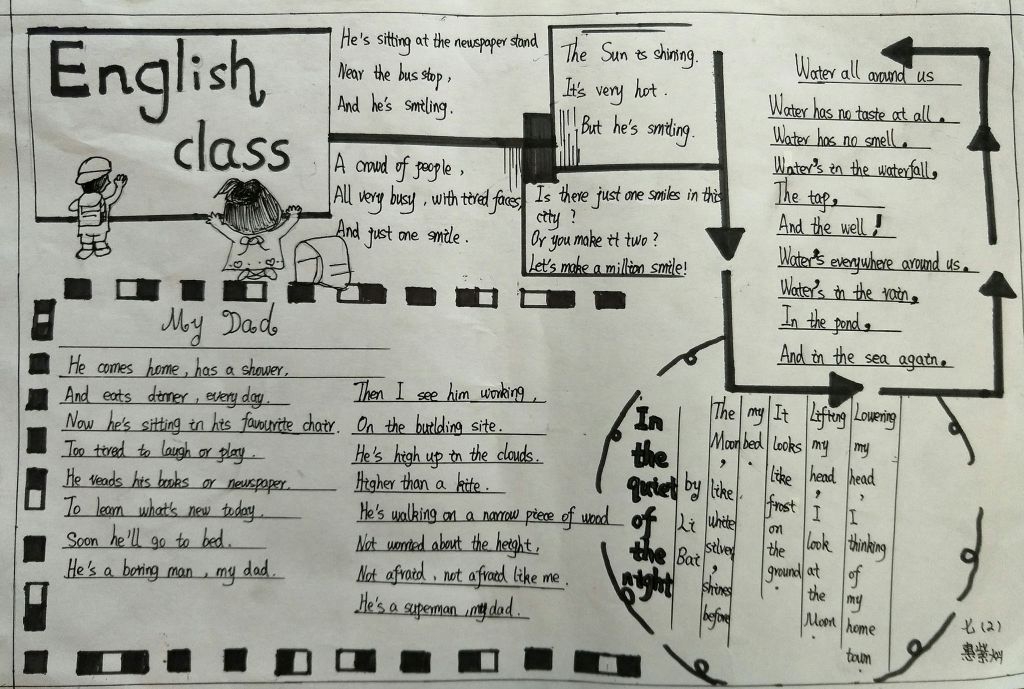 English
class
He's sitting at the newspaper stand
Near the bus stop,
And he's smiling.
A crowd of people,
All very busy, with tired faces,
And just one smile.
The Sun is shining.
It's very hot.
But he's smiling.
Is there just one smiles in this
city?
Or you make it two?
Let's make a million smile!
Water all around us
Water has no taste at all.
Water has no smell.
Water's in the waterfall,
The tap,
And the well!
Water's everywhere around us.
Water's in the rain,
In the pond,
And in the sea again.
My Dad
He comes home, has a shower.
And eats dinner, every day.
Now he's sitting in his favourite chair.
Too tired to laugh or play.
He reads his books or newspaper.
To learn what's new today.
Soon he'll go to bed.
He's a boring man, my dad.
Then I see him working,
On the building site.
He's high up in the clouds.
Higher than a kite.
He's walking on a narrow piece of wood
Not worried about the height,
Not afraid, not afraid like me.
He's a superman, my dad.
In the quiet of the night
by Li Bai
The Moon, like white silver, shines before
my bed.
It looks like frost on the ground.
Lifting my head, I look at the Moon.
Lowering my head, I thinking of my home town
七(2)